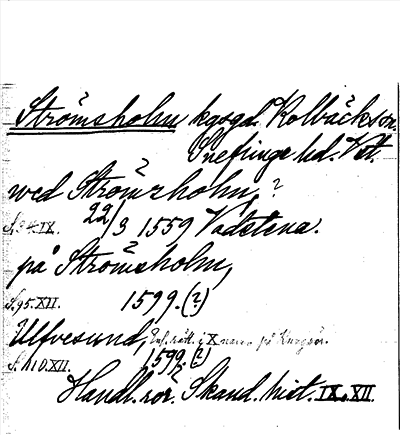 Strömsholm kgsgd. Kolbäcks sn.
Snefringe hd. Vst.
wed Strömzholm, ?
S. 34. IX. 22/3 1559 Vadstena.
på Strömsholm,
S. 95. XII. 1599. (?)
Ulfvesund, namn på Kungsör.
S. 110. XII. 1599. (?)
Handl. rör. Skand. hist. IX o. XII.